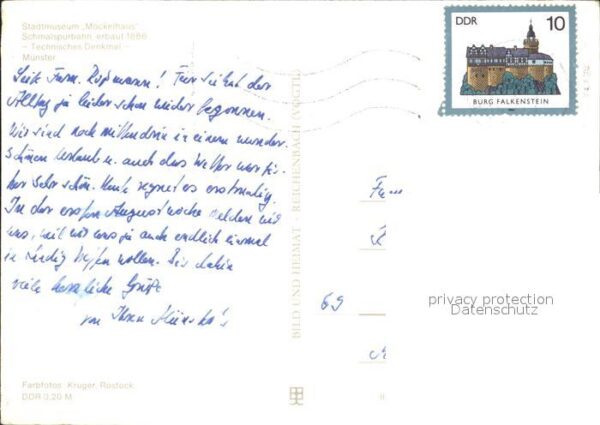 Stadtmuseum „Möckelhaus"
Schmalspurbahn, erbaut 1886
– Technisches Denkmal –
Münster
Fam. ! Für Sie hat der
Alltag ja leider schon wieder begonnen.
Wir sind noch mittendrin in einem wunder-
schönen Urlaub u. auch das Wetter war bis-
her sehr schön. Heute regnet es erstmalig.
In der ersten Augustwoche melden wir
uns, weil wir uns ja auch endlich einmal
in wollen. Bis dahin
viele herzliche Grüße
von Ihren
Farbfotos: Kruger, Rostock
DDR 0,20 M
BILD UND HEIMAT · REICHENBACH (VOGTL)
DDR 10
BURG FALKENSTEIN
69
privacy protection
Datenschutz